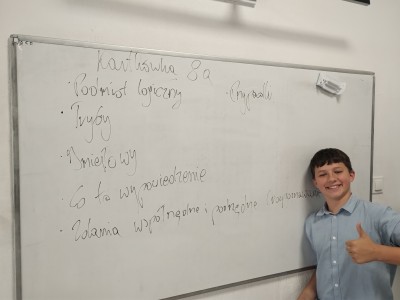 Kartkówka 8a
· Podmiot logiczny · Przypadki
· Tryby
· Imiesłowy
· Co to wypowiedzenie
· Zdania współrzędne i podrzędne